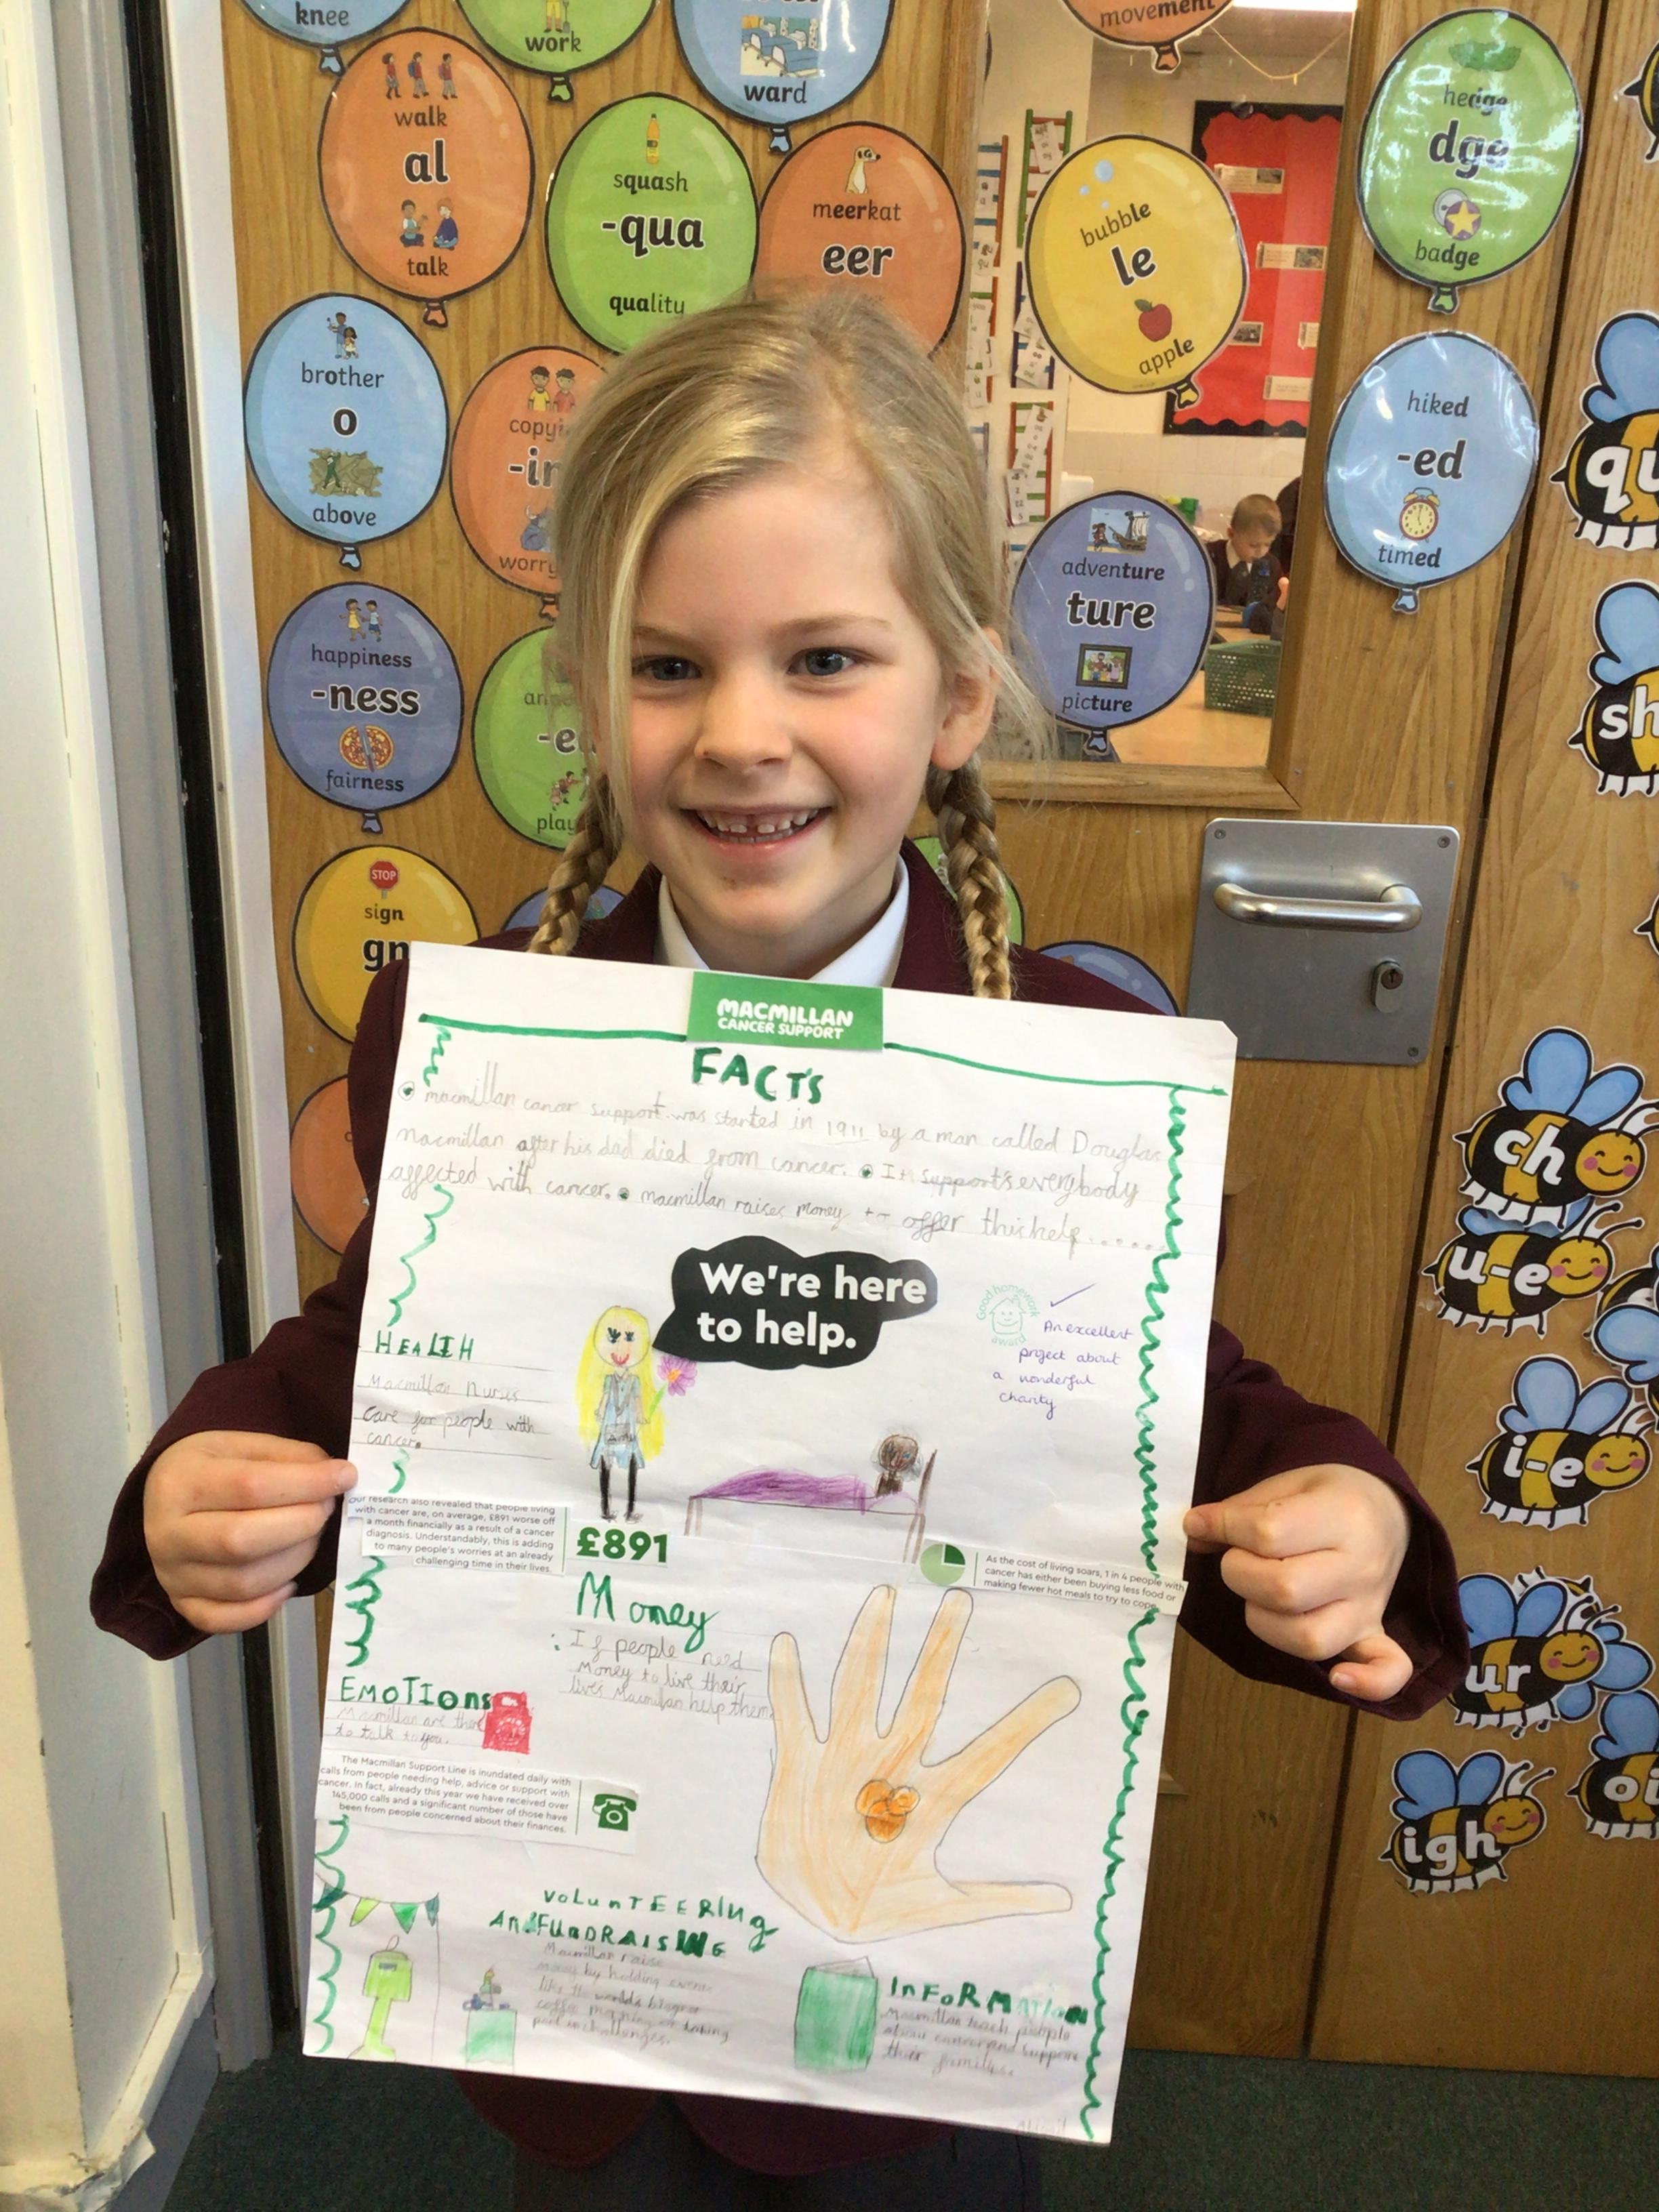 knee
work
ward
movement
walk
al
talk
squash
-qua
quality
meerkat
eer
bubble
le
apple
hedge
dge
badge
brother
o
above
worry
hiked
-ed
timed
adventure
ture
picture
happiness
-ness
fairness
play
STOP
sign
gn
qu
sh
ch
u-e
i-e
ur
oi
igh
MACMILLAN
CANCER SUPPORT
FACTS
macmillan cancer support was started in 1911 by a man called Douglas
macmillan after his dad died from cancer. It support's everybody
affected with cancer. macmillan raises money to offer this help......
We're here
to help.
Good homework
award
An excellent
project about
a wonderful
charity
HEALTH
Macmillan Nurses
care for people with
cancer.
Our research also revealed that people living
with cancer are, on average, £891 worse off
a month financially as a result of a cancer
diagnosis. Understandably, this is adding
to many people's worries at an already
challenging time in their lives.
£891
As the cost of living soars, 1 in 4 people with
cancer has either been buying less food or
making fewer hot meals to try to cope.
Money
If people need
Money to live their
lives Macmillan help them.
EMOTIons
Macmillan are there
to talk to you.
The Macmillan Support Line is inundated daily with
calls from people needing help, advice or support with
cancer. In fact, already this year we have received over
145,000 calls and a significant number of those have
been from people concerned about their finances.
VoLunTEERIng
AndFUnDRAISING
Macmillan raise
money by holding events
like the worlds biggest
coffee morning or taking
part in challenges.
InFoRMATIon
Macmillan teach people
about cancer and support
thier families.